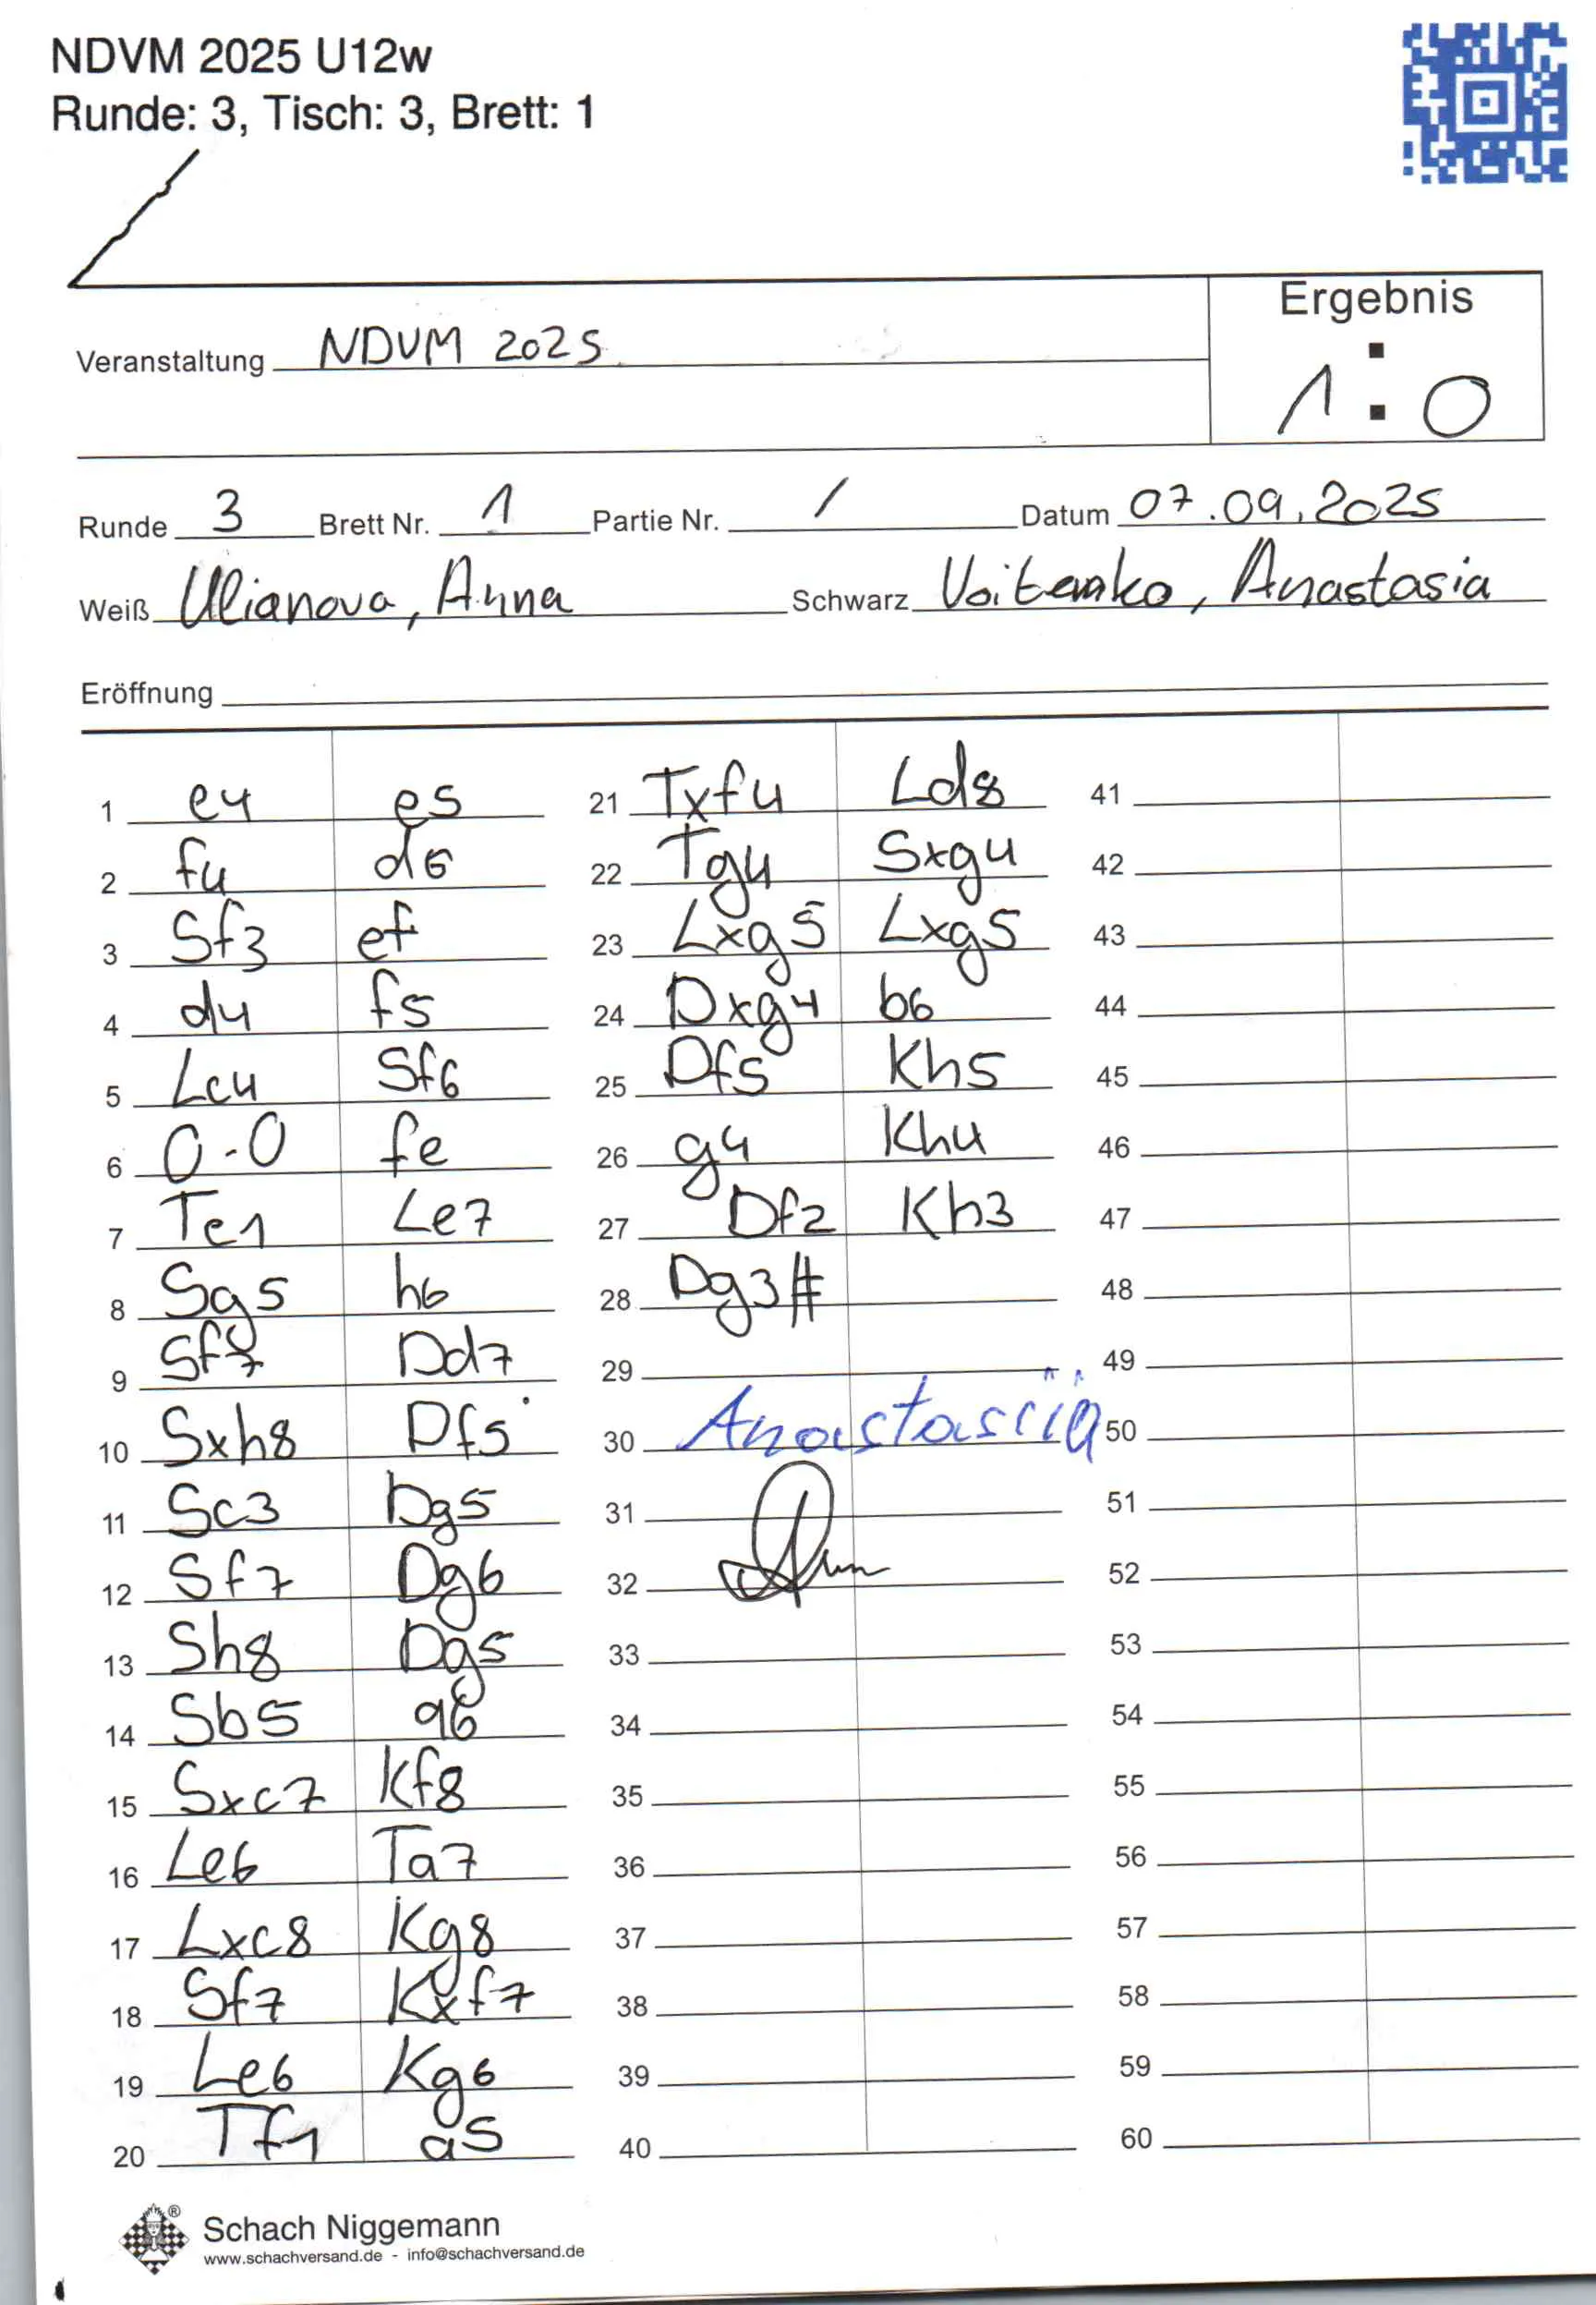 NDVM 2025 U12w
Runde: 3, Tisch: 3, Brett: 1
Ergebnis
Veranstaltung NDVM 2025
1 : 0
Runde 3 Brett Nr. 1 Partie Nr. / Datum 07.09.2025
Weiß Ulianova, Anna Schwarz Voitenko, Anastasia
Eröffnung
1 e4 e5
2 f4 d6
3 Sf3 ef
4 d4 f5
5 Lc4 Sf6
6 0-0 fe
7 Te1 Le7
8 Sg5 h6
9 Sf7 Dd7
10 Sxh8 Df5
11 Sc3 Dg5
12 Sf7 Dg6
13 Sh8 Dg5
14 Sb5 a6
15 Sxc7 Kf8
16 Le6 Ta7
17 Lxc8 Kg8
18 Sf7 Kxf7
19 Le6 Kg6
20 Tf1 a5
21 Txf4 Ld8
22 Tg4 Sxg4
23 Lxg5 Lxg5
24 Dxg4 b6
25 Df5 Kh5
26 g4 Kh4
27 Df2 Kh3
28 Dg3#
29
30 Anastasiia
31
32
33
34
35
36
37
38
39
40
41
42
43
44
45
46
47
48
49
50
51
52
53
54
55
56
57
58
59
60
Schach Niggemann
www.schachversand.de - info@schachversand.de